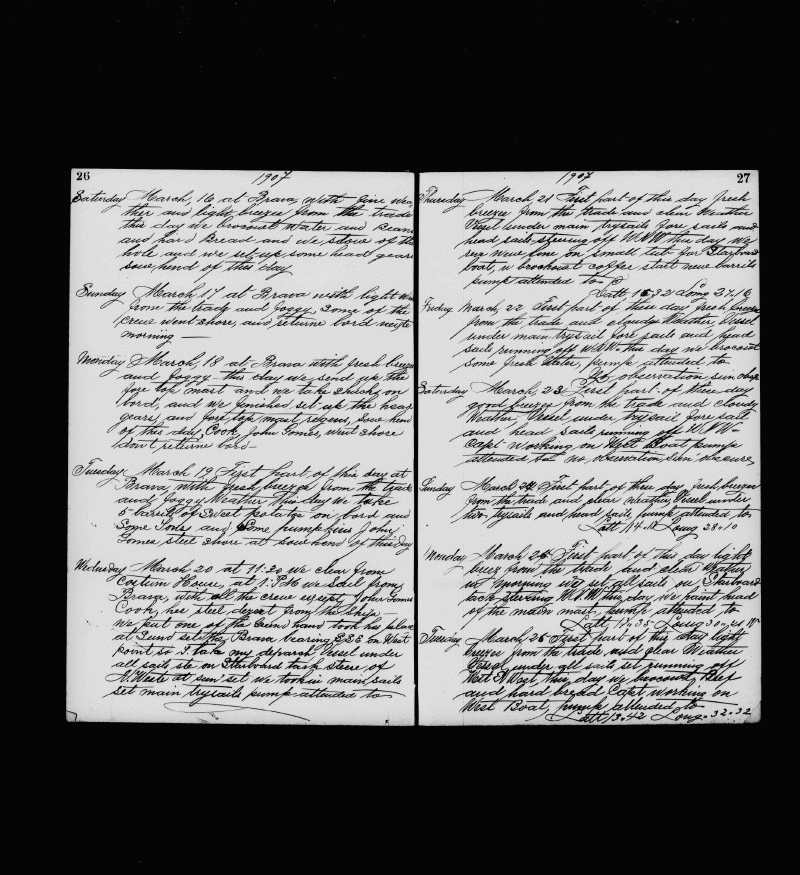 26
1907
Saturday March, 16 at Brava, with fine wea
ther and light breeze from the trade
this day we brocout water and Beans
and hard Bread and we stove of the
hole and we set up some head gears
so end of this day
Sunday March 17 at Brava with light
from the trade and foggy, Some of the
crew went shore, and returne bord
morning —
Monday March, 18 at Brava with fresh breeze
and foggy this day we send up the
fore top mast and we take on
bord, and we finished set up the head
gears, and fore top mast
of this day, Cook John Gomes, went shore
don't returne bord
Tuesday March 19 First part of this day at
Brava with fresh breeze from the trade
and foggy Weather this day we take
5 barrels of Sweet potatge on bord and
Some and Some pumpkins John
Gomes, steel shore at end of this day
Wednesday March 20 at 11:30 we clear from
Costum House, at 1. P.M we sail from
Brava, with all the crew except, John Gomes
Cook, hee steel desert from the Ship —
we put one of the hand took his place
at Sund set they Brava bearing E.S.E on West
point so I take my deparch Vessel under
all sails ste on Starboard tack steere of
N. Weste at sun set we tookin main sails
set main trysails pump attended to
1907
27
Thursday March, 21 First part of this day fresh
breeze from the trade and clear Weather
Vessel under main trysails fore sails and
head sails steering off W.N.W this day we
new fone on small tub for Starboard
boat, brockout coffee start new barrils
pump attended to
Latt 15-32 Long 27.16
Friday March, 22 First part of these day fresh breeze
from the trade and cloudy Weather, Vessel
under main trysail fore sails and head
sails running off W.N.W. this day we brocout
some fresh Water, pump attended to
No observation sun
Saturday March, 23 First part of these day
good breeze from the trade and cloudy
Weather Vessel under trysail fore sail
and head sails running off W.N.W—
Capt working on West Boat pump
attended to no, observation, sun obscure,
Sunday March, 24 First part of thee day fresh, breeze
from the trade and clear weather, Vessel under
two, trysails and head sails, pump attended to
Latt Long 28.10
Monday March 25 First part of this day light
breez from the trade and clear Weather
in morning we set all sails on Starboard
tack steering W.N.W this day we paint head
of the main mast, pump attended to
Latt, Long 30.21
Tuesday March, 26 First part of this day light
breeze from the trade, and clear Weather
Vessel, under all sails set running off
West N West, this day we brocout, Beef
and hard bread Capt working on
West Boat, pump attended to
Latt 13.42 Long. 32.32